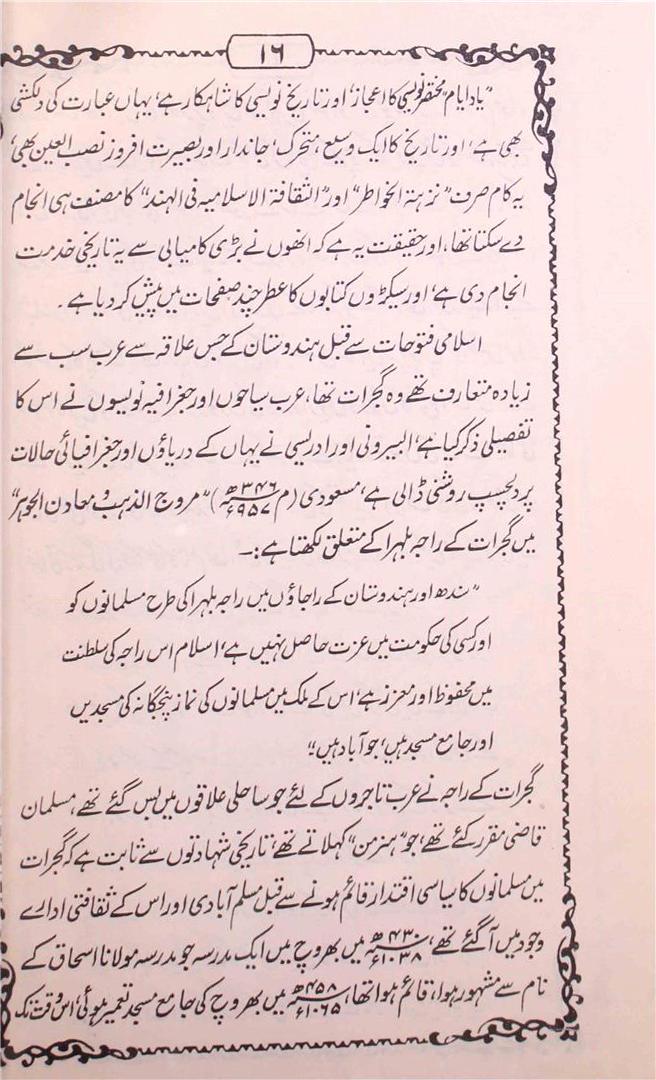 ۱۶
"یاد ایام" مختصر نویسی کا اعجاز، اور تاریخ نویسی کا شاہکار ہے، یہاں عبارت کی دلکشی
بھی ہے، اور تاریخ کا ایک وسیع، متحرک، جاندار اور بصیرت افروز نصب العین بھی،
یہ کام صرف "نزہۃ الخواطر" اور "الثقافۃ الاسلامیہ فی الہند" کا مصنف ہی انجام
دے سکتا تھا، اور حقیقت یہ ہے کہ انھوں نے بڑی کامیابی سے یہ تاریخی خدمت
انجام دی ہے، اور سیکڑوں کتابوں کا عطر چند صفحات میں پیش کر دیا ہے۔
اسلامی فتوحات سے قبل ہندوستان کے جس علاقہ سے عرب سب سے
زیادہ متعارف تھے وہ گجرات تھا، عرب سیاحوں اور جغرافیہ نویسوں نے اس کا
تفصیلی ذکر کیا ہے، البیرونی اور ادریسی نے یہاں کے دریاؤں اور جغرافیائی حالات
پر دلچسپ روشنی ڈالی ہے، مسعودی (م ۳۴۶ھ ۹۵۷ء) "مروج الذہب و معادن الجوہر"
میں گجرات کے راجہ بلہرا کے متعلق لکھتا ہے :۔
"سندھ اور ہندوستان کے راجاؤں میں راجہ بلہرا کی طرح مسلمانوں کو
اور کسی کی حکومت میں عزت حاصل نہیں ہے، اسلام اس راجہ کی سلطنت
میں محفوظ اور معزز ہے، اس کے ملک میں مسلمانوں کی نماز پنجگانہ کی مسجدیں
اور جامع مسجد ہیں، جو آباد ہیں"؛
گجرات کے راجہ نے عرب تاجروں کے لئے جو ساحلی علاقوں میں بس گئے تھے، مسلمان
قاضی مقرر کئے تھے، جو "ہنرمن" کہلاتے تھے، تاریخی شہادتوں سے ثابت ہے کہ گجرات
میں مسلمانوں کا سیاسی اقتدار قائم ہونے سے قبل مسلم آبادی اور اس کے ثقافتی ادارے
وجود میں آ گئے تھے، ۴۳۰ھ ۱۰۳۸ء میں بھروچ میں ایک مدرسہ جو مدرسہ مولانا اسحاق کے
نام سے مشہور ہوا، قائم ہوا تھا، ۴۵۸ھ ۱۰۶۵ء میں بھروچ کی جامع مسجد تعمیر ہوئی، اس وقت تک